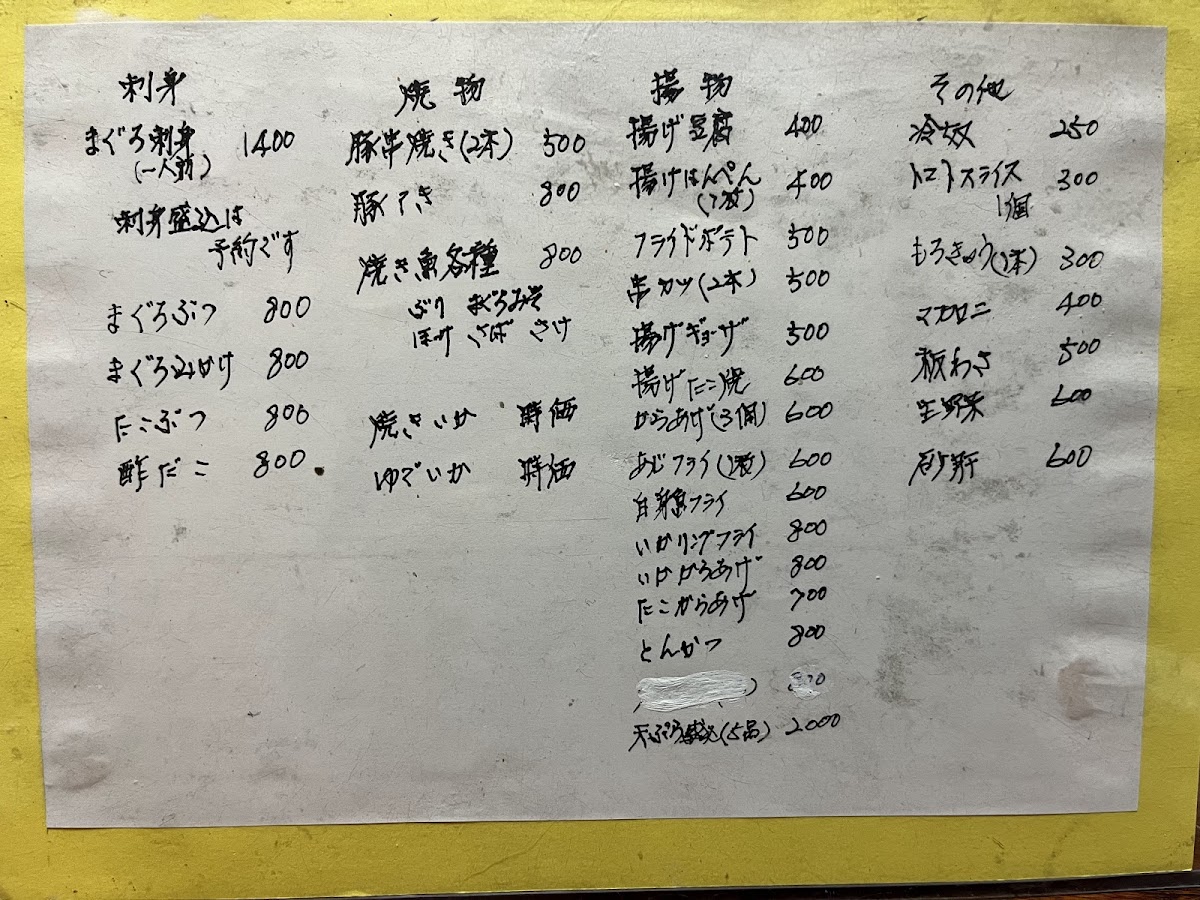 刺身
まぐろ刺身 1400
(一人前)
刺身盛込は
予約です
まぐろぶつ 800
まぐろ山かけ 800
たこぶつ 800
酢だこ 800
焼物
豚串焼き(2本) 500
豚 き 800
焼き魚各種 800
ぶり まぐろみそ
ほっけ さば さけ
焼きいか 時価
ゆでいか 時価
揚物
揚げ豆腐 400
揚げはんぺん 400
(1枚)
フライドポテト 500
串カツ(2本) 500
揚げギョーザ 500
揚げたこ焼 600
からあげ(3個) 600
あじフライ(1枚) 600
白身魚フライ 600
いかリングフライ 800
いかからあげ 800
たこからあげ 700
とんかつ 800
天ぷら盛込(5品) 2000
その他
冷奴 250
トマトスライス 300
1個
もろきゅう(1本) 300
マカロニ 400
板わさ 500
生野菜 600
砂肝 600